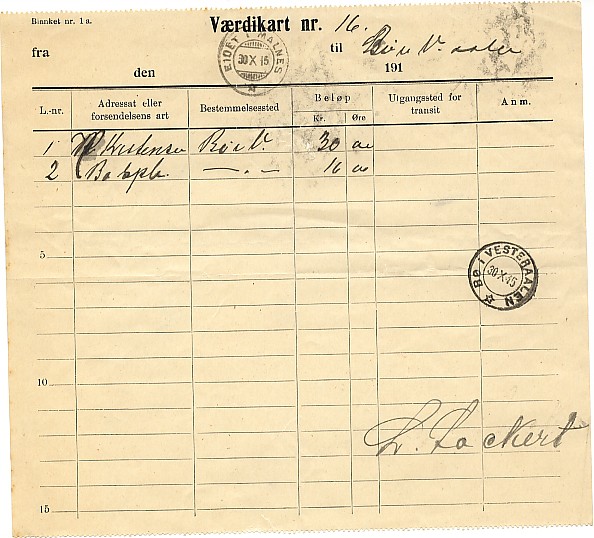 Blanket nr. 1 a.
Værdikart nr. 16.
fra
EIDET I MALNES
30 X 15
til Bø i V.aalen
den
191
L.-nr. Adressat eller forsendelsens art Bestemmelsessted Beløp Kr. Øre Utgangssted for transit Anm.
1 Bø i V. 30 00
2 — . — 16 00
5
BØ I VESTERAALEN
30 X 15
10
L. Lockert
15